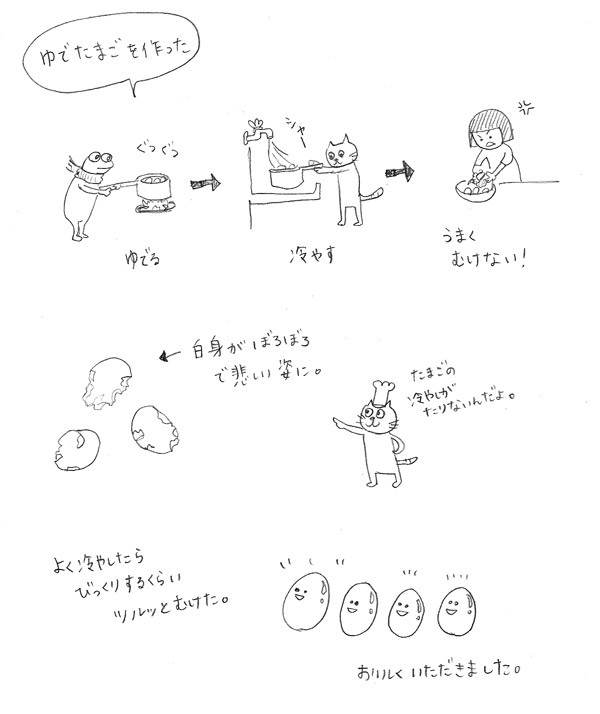 ゆでたまごを作った
ぐつぐつ
シャー
ゆでる
冷やす
うまく
むけない！
白身がぼろぼろ
で悲しい姿に。
たまごの
冷やしが
たりないんだよ。
よく冷やしたら
びっくりするくらい
ツルッとむけた。
おいしくいただきました。